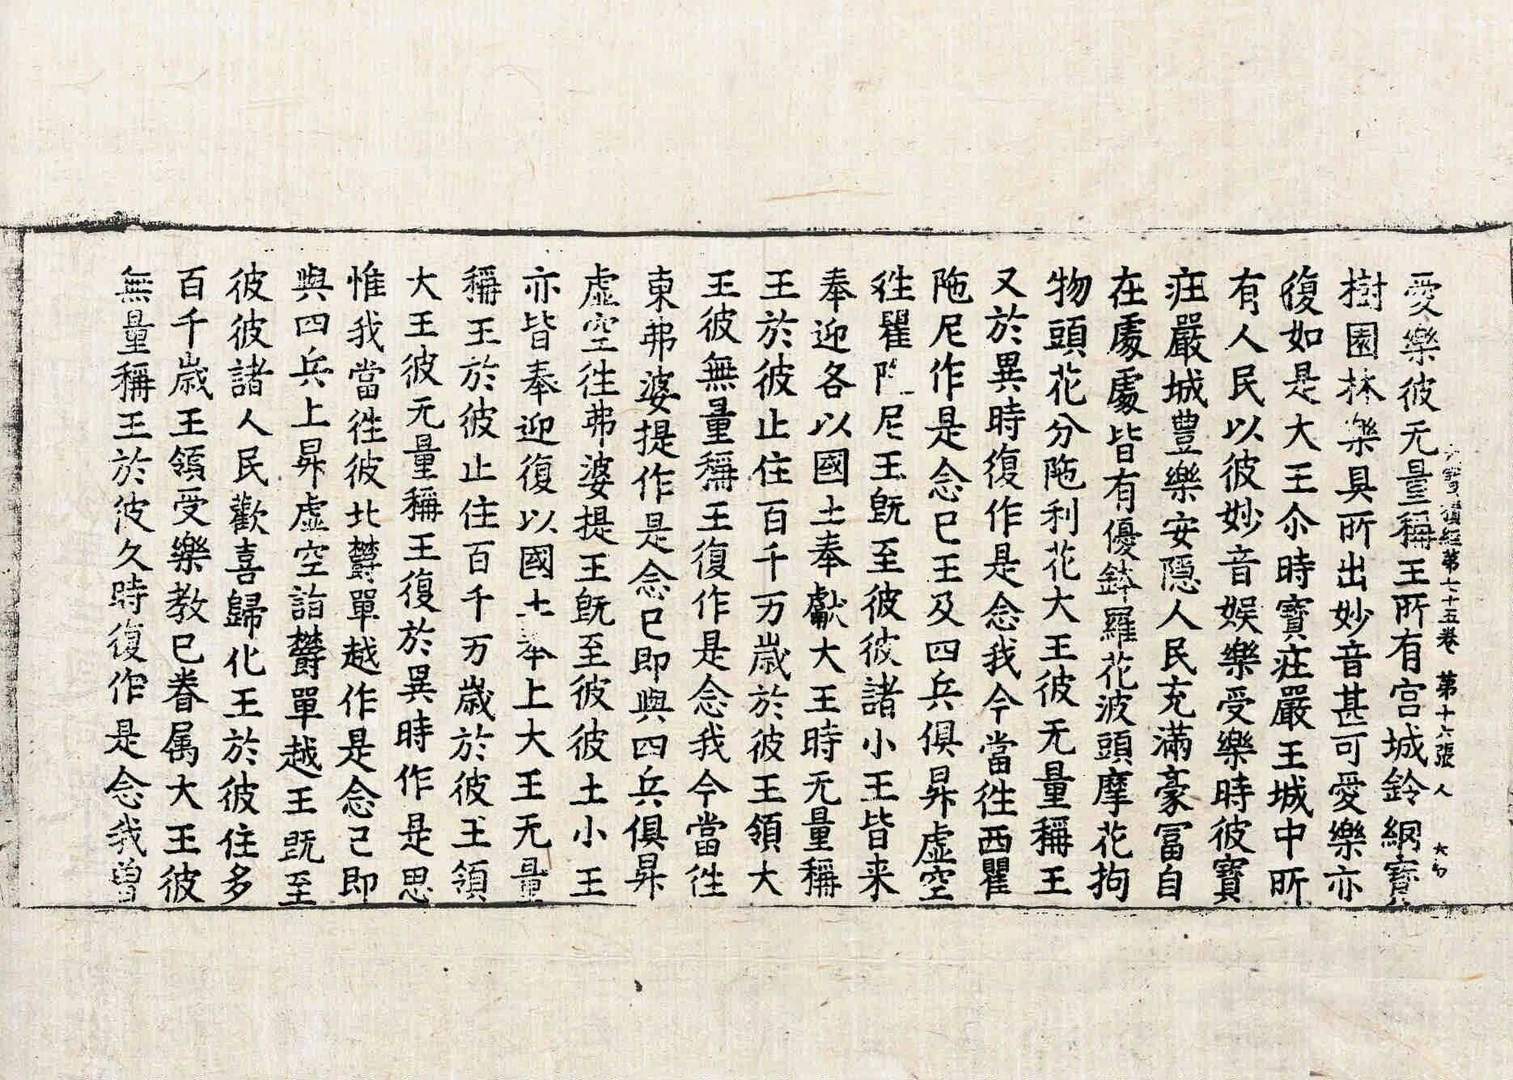 愛樂彼无量稱王所有宮城鈴網寶
寶積經第七十五卷 第十六張 人
樹園林樂具所出妙音甚可愛樂亦
復如是大王尒時寶疘嚴王城中所
有人民以彼妙音娛樂受樂時彼寶
疘嚴城豊樂安隱人民充滿豪冨自
在處處皆有優鉢羅花波頭摩花拘
物頭花分陁利花大王彼无量稱王
又於異時復作是念我今當徃西瞿
陁尼作是念已王及四兵俱昇虛空
徃瞿陁尼王旣至彼彼諸小王皆来
奉迎各以國土奉獻大王時无量稱
王於彼止住百千万歲於彼王領大
王彼無量稱王復作是念我今當徃
東弗婆提作是念已即與四兵俱昇
虛空徃弗婆提王旣至彼彼土小王
亦皆奉迎復以國土奉上大王无量
稱王於彼止住百千万歲於彼王領
大王彼无量稱王復於異時作是思
惟我當徃彼北欝單越作是念已即
與四兵上昇虛空詣欝單越王旣至
彼彼諸人民歡喜歸化王於彼住多
百千歲王領受樂教已眷属大王彼
無量稱王於彼久時復作是念我曽